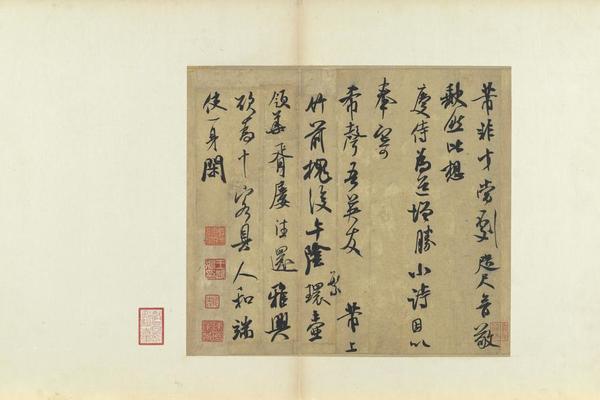 芾非才當劇咫尺音敬
闕然比想
慶侍為道增勝小詩因以
奉寄
希聲吾英友 芾上
竹前槐後午陰繁環壺
領華胥屢往還雅興
欲為十客具人和端
使一身閑